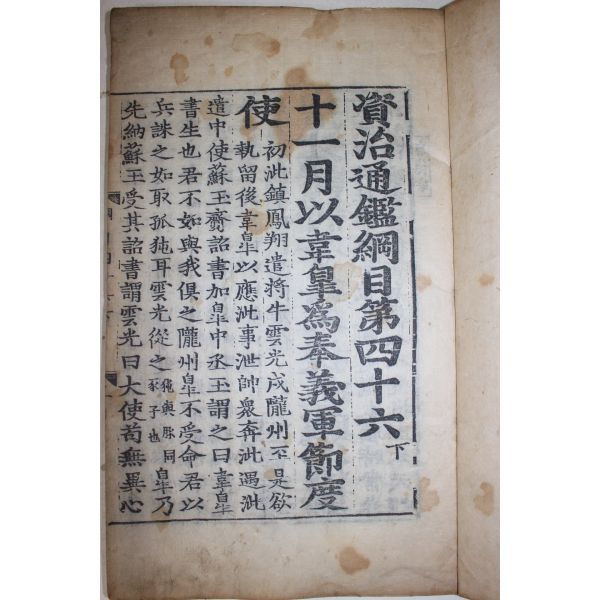 資治通鑑綱目第四十六下
十一月以韋皐爲奉義軍節度
使
初泚鎮鳳翔遣將牛雲光戍隴州至是欲
執留後韋皐以應泚事泄帥衆奔泚遇泚
遣中使蘇玉齎詔書加皐中丞玉謂之曰韋皐
書生也君不如與我俱之隴州皐不受命君以
兵誅之如取孤㹠耳雲光從之㹠與豚同豕子也皐乃
先納蘇玉受其詔書謂雲光曰大使苟無異心